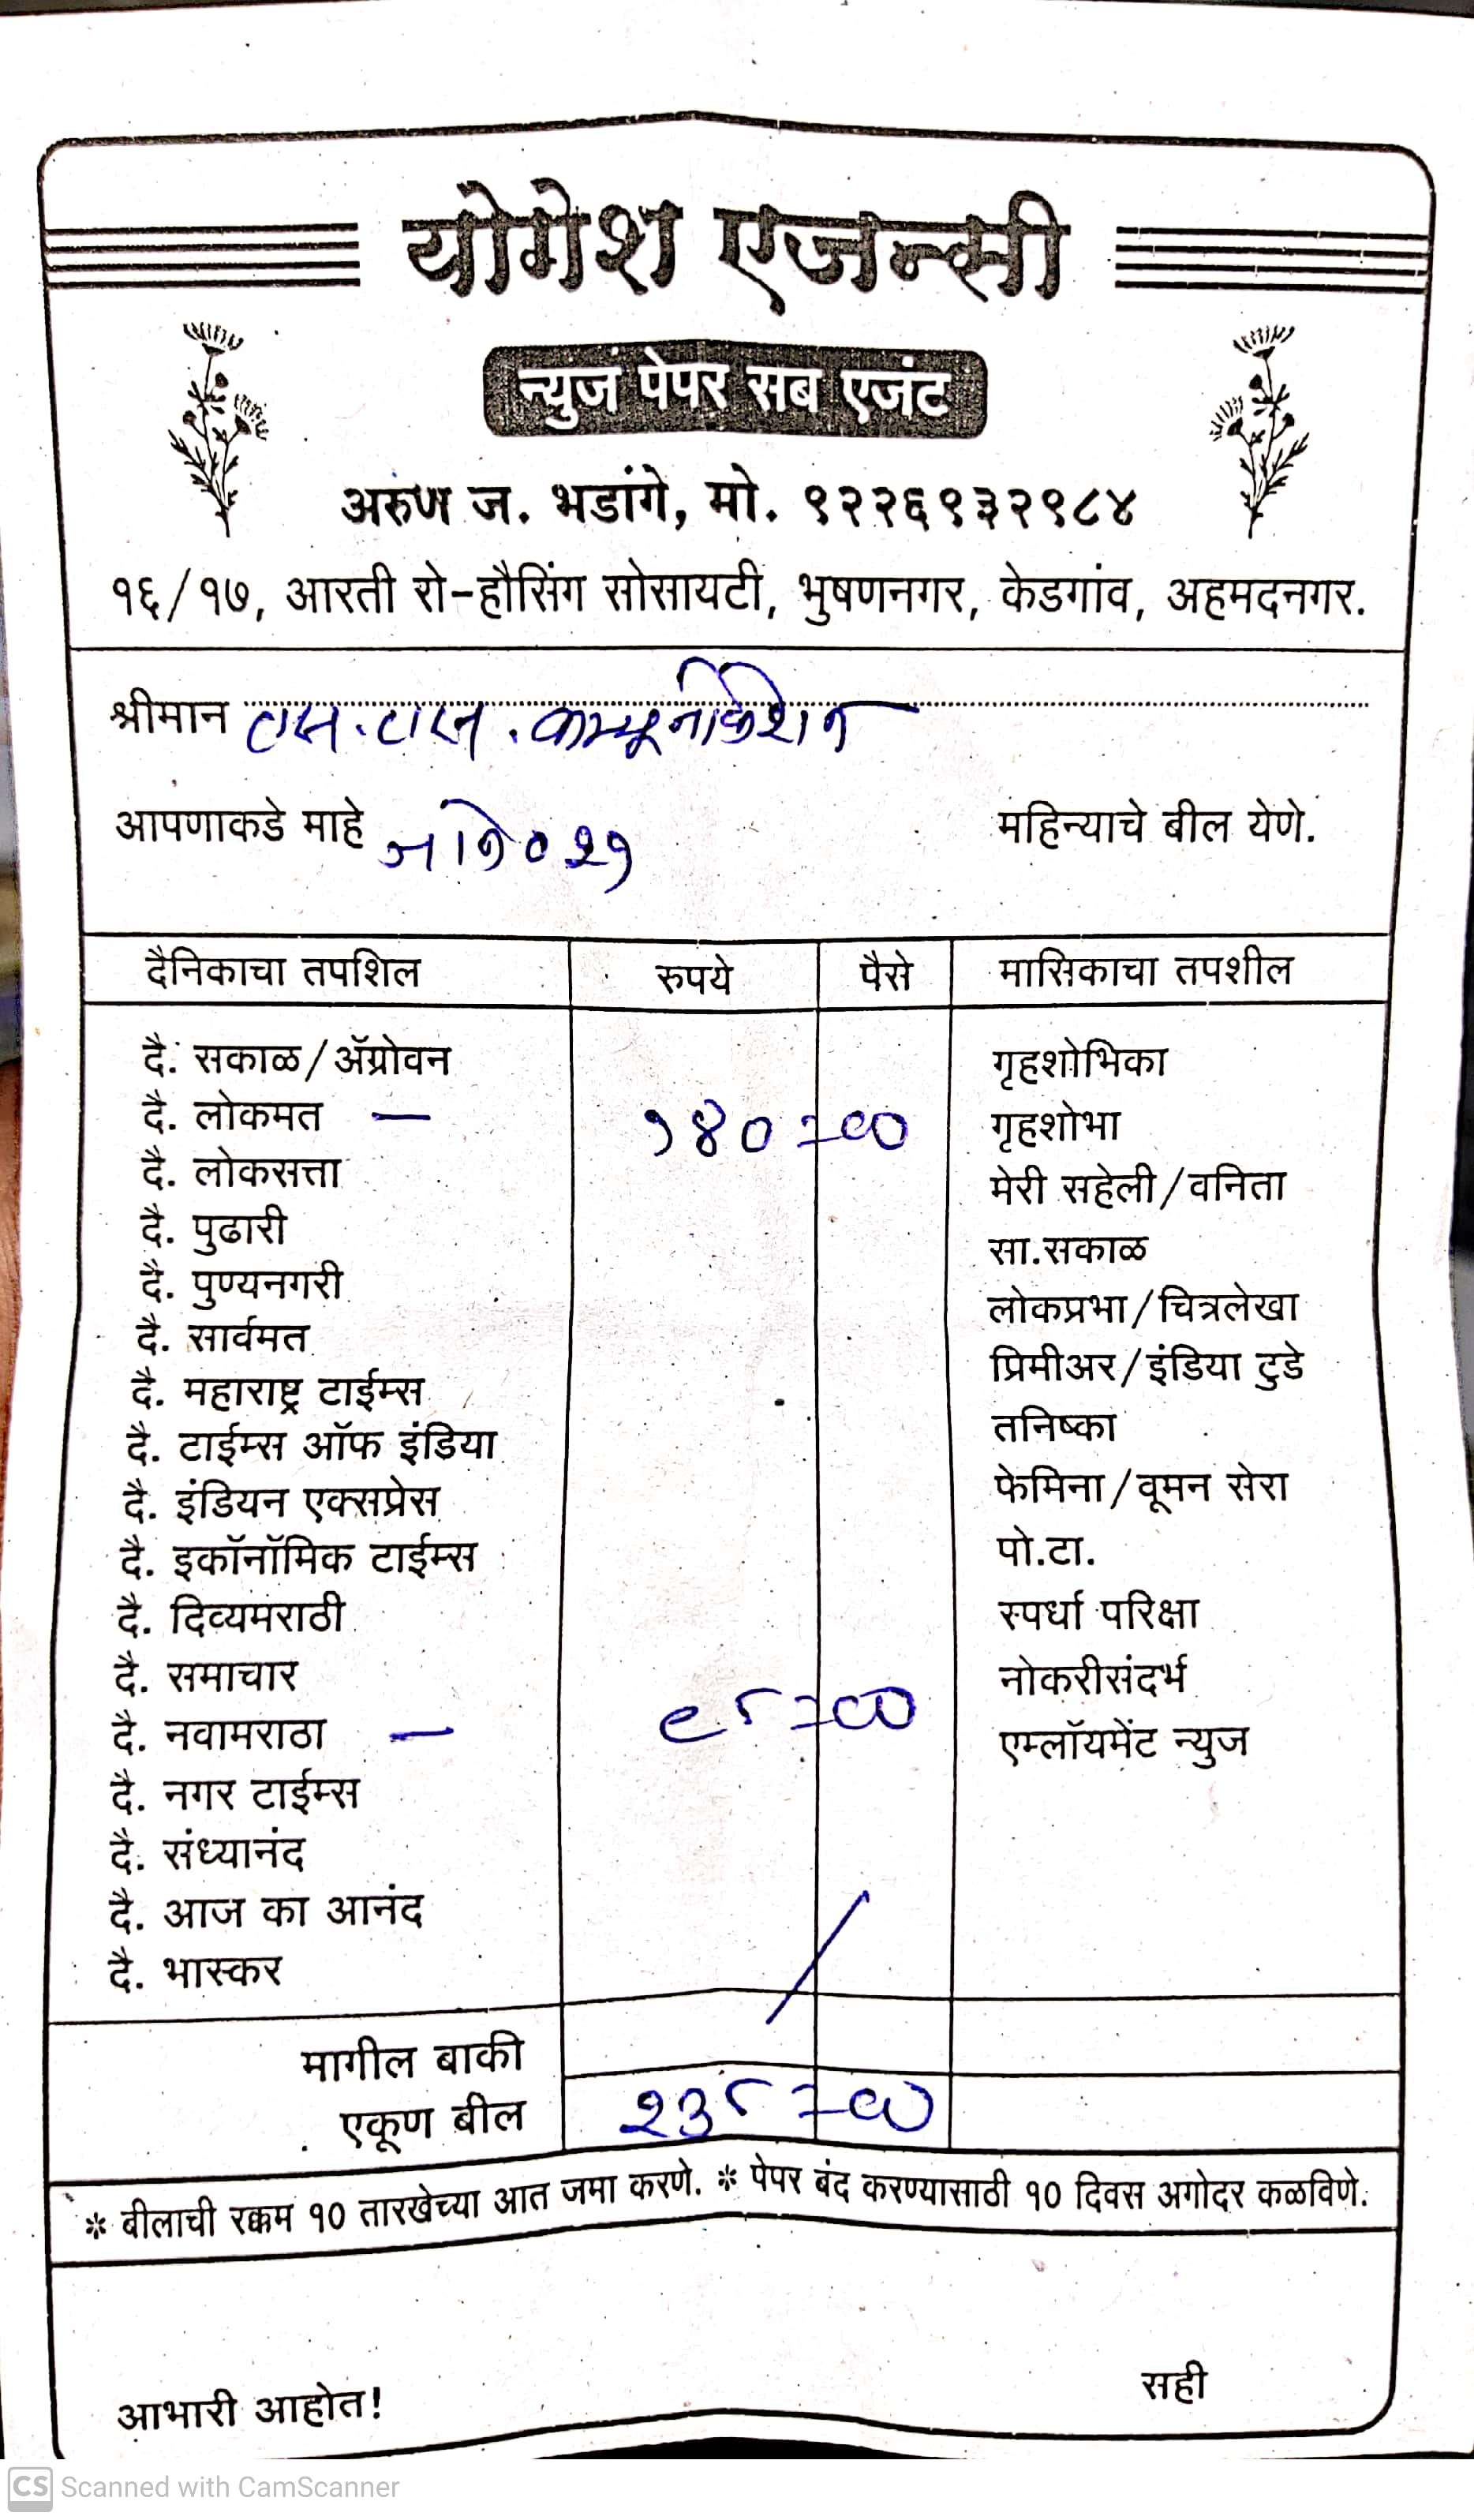 योगेश एजन्सी
न्युज पेपर सब एजंट
अरुण ज. भडांगे, मो. ९२२६९३२९८४
१६/१७, आरती रो-हौसिंग सोसायटी, भुषणनगर, केडगांव, अहमदनगर.
श्रीमान एस.एस. कम्युनिकेशन
आपणाकडे माहे जाने० २१ महिन्याचे बील येणे.
दैनिकाचा तपशिल रुपये पैसे मासिकाचा तपशील
दै. सकाळ/ॲग्रोवन गृहशोभिका
दै. लोकमत — १४०=०० गृहशोभा
दै. लोकसत्ता मेरी सहेली/वनिता
दै. पुढारी सा.सकाळ
दै. पुण्यनगरी लोकप्रभा/चित्रलेखा
दै. सार्वमत प्रिमीअर/इंडिया टुडे
दै. महाराष्ट्र टाईम्स तनिष्का
दै. टाईम्स ऑफ इंडिया फेमिना/वूमन सेरा
दै. इंडियन एक्सप्रेस पो.टा.
दै. इकॉनॉमिक टाईम्स स्पर्धा परिक्षा
दै. दिव्यमराठी नोकरीसंदर्भ
दै. समाचार एम्लॉयमेंट न्युज
दै. नवामराठा — ९५=००
दै. नगर टाईम्स
दै. संध्यानंद
दै. आज का आनंद
दै. भास्कर
मागील बाकी /
एकूण बील २३५=००
* बीलाची रक्कम १० तारखेच्या आत जमा करणे. * पेपर बंद करण्यासाठी १० दिवस अगोदर कळविणे.
आभारी आहोत! सही
CS Scanned with CamScanner